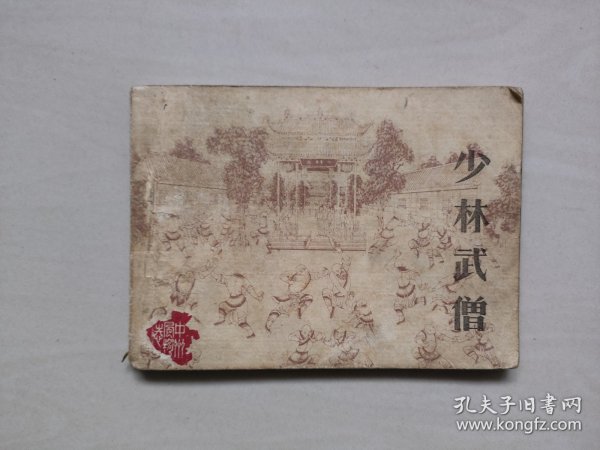 少林武僧
中州
风物志
孔夫子旧書网
www.kongfz.com